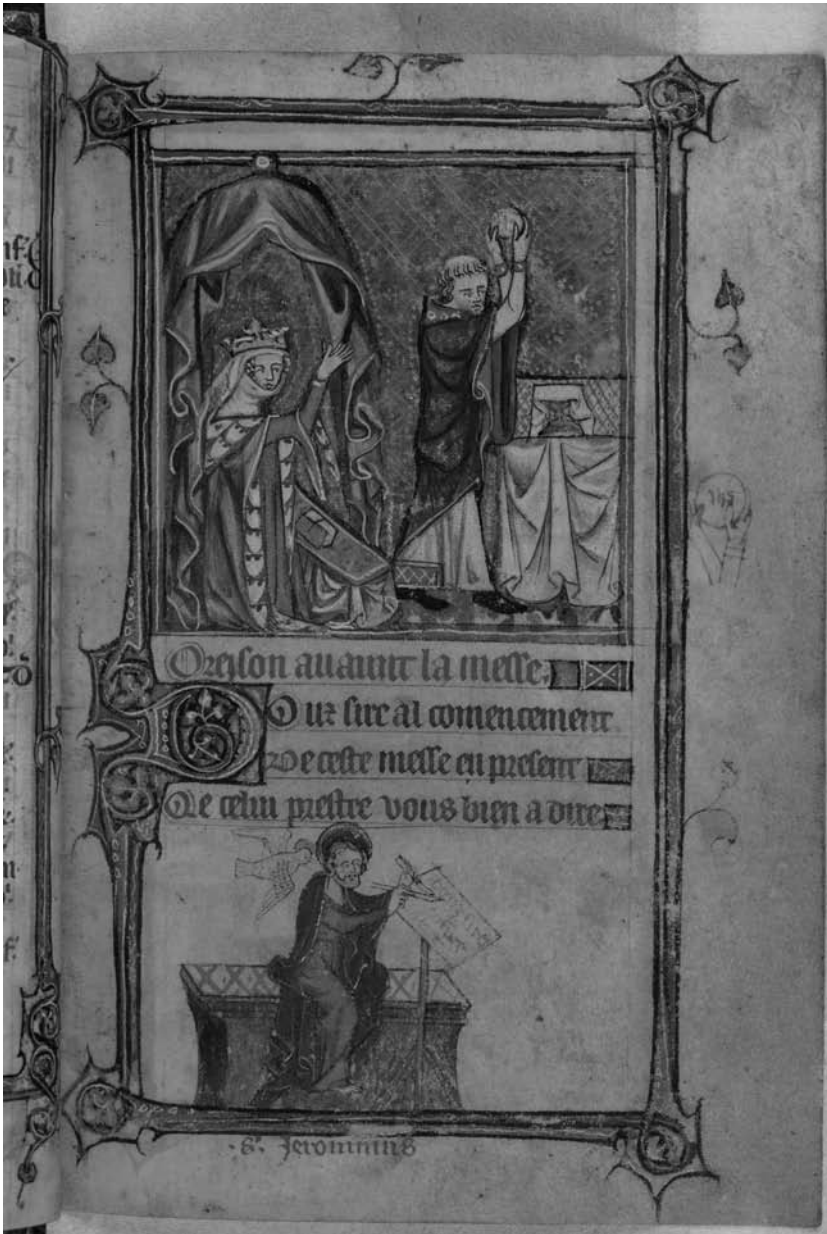 Oreison auaunt la messe.
Douz sire al comencement
De ceste messe en present
Qe celui prestre vous bien a dire
.S. Jeronimus